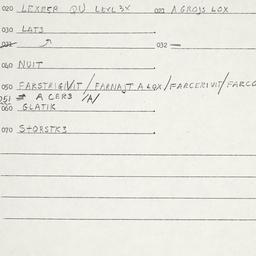 020 LEXMER QU LEVL 3X 021 A GROJS LOX
030 LATS
031 032 —
040 NUIT
050 FARSTRIGIVIT / FARNAJT A LOX / FARCERIVIT / FARCO
051 = A CERS /A/
060 GLATIK
070 STORSTKS